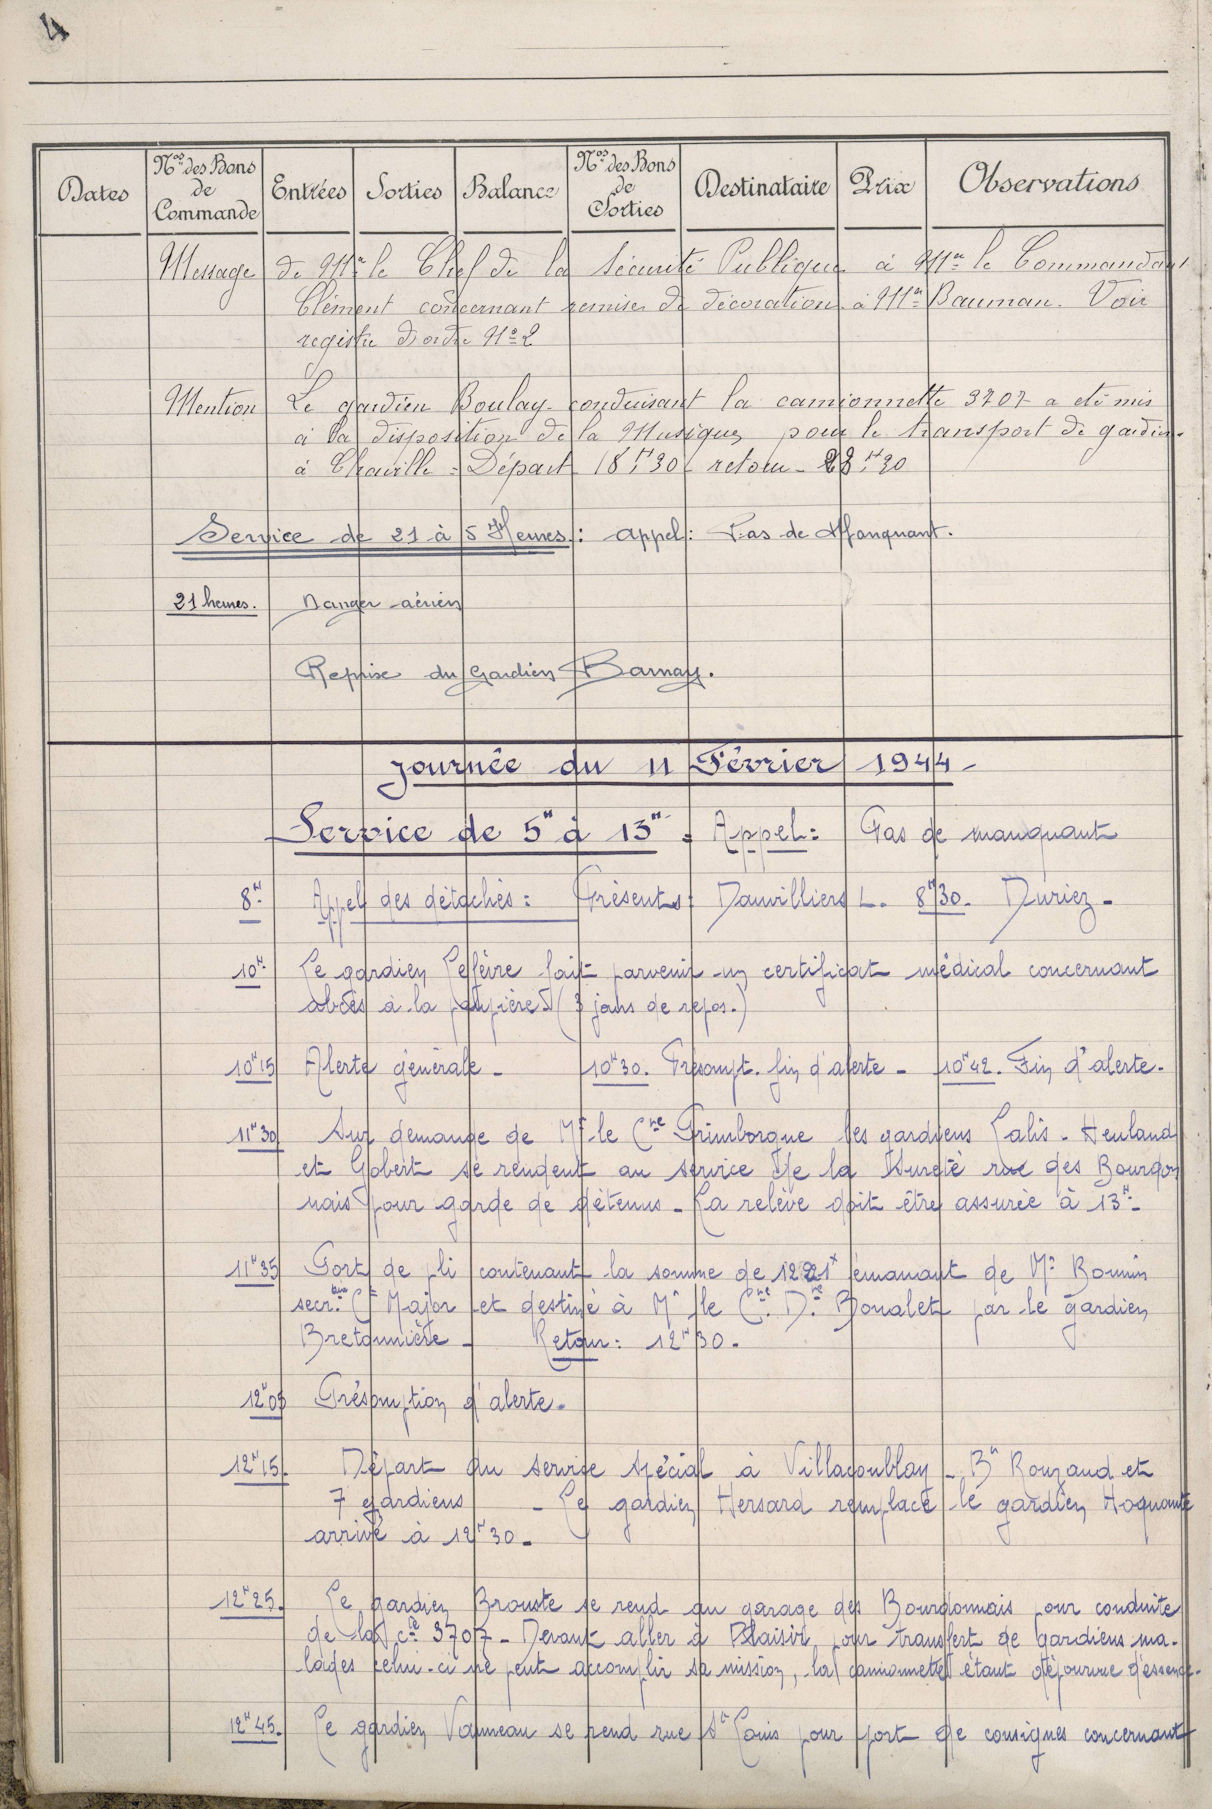 4
Dates
Nos des Bons de Commande
Entrées
Sorties
Balance
Nos des Bons de Sorties
Destinataire
Prix
Observations
Message de Mr le Chef de la Sécurité Publique à Mr le Commandant
Clément concernant remise de décoration à Mr Bauman. Voir
registre d'ordre No 2
Mention Le gardien Boulay conduisant la camionnette 3707 a été mis
à la disposition de la Musique, pour le transport de gardiens
à Chaville = Départ 18H30 retour - 23H30
Service de 21 à 5 Heures : appel : Pas de Manquant.
21 heures. Danger aérien
Reprise du gardien Barnay.
Journée du 11 Février 1944 -
Service de 5H à 13H = Appel : Pas de manquant
8H. Appel des détachés : Présents : Dauvilliers L. 8H30. Duriez -
10H. Le gardien Lefèvre fait parvenir un certificat médical concernant
abcès à la paupière D (3 jours de repos.)
10H15 Alerte générale - 10H30. Présompt. fin d'alerte - 10H42. Fin d'alerte.
11H30 Sur demande de Mr le Cne Grimborgne les gardiens Lalis - Heuland
et Gobert se rendent au service de la Sureté rue des Bourdon
nais pour garde de détenus - La relève doit être assurée à 13H -
11H35 Port de pli contenant la somme de 1221f émanant de Mr Bonnin
secrre Ct Major et destiné à Mr le Cne Dne Boualet par le gardien
Bretonnière - Retour : 12H30.
12H05 Présomption d'alerte.
12H15. Départ du service spécial à Villacoublay - Br Rouzaud et
7 gardiens - Le gardien Hersard remplace le gardien Hoquante
arrivé à 12H30.
12H25. Le gardien Brouste se rend au garage des Bourdonnais pour conduite
de la cte 3707 - Devant aller à Plaisir pour transfert de gardiens ma-
lades celui-ci ne peut accomplir sa mission, la camionnette étant dépourvue d'essence.
12H45. Le gardien Vanneau se rend rue St Louis pour port de consignes concernant